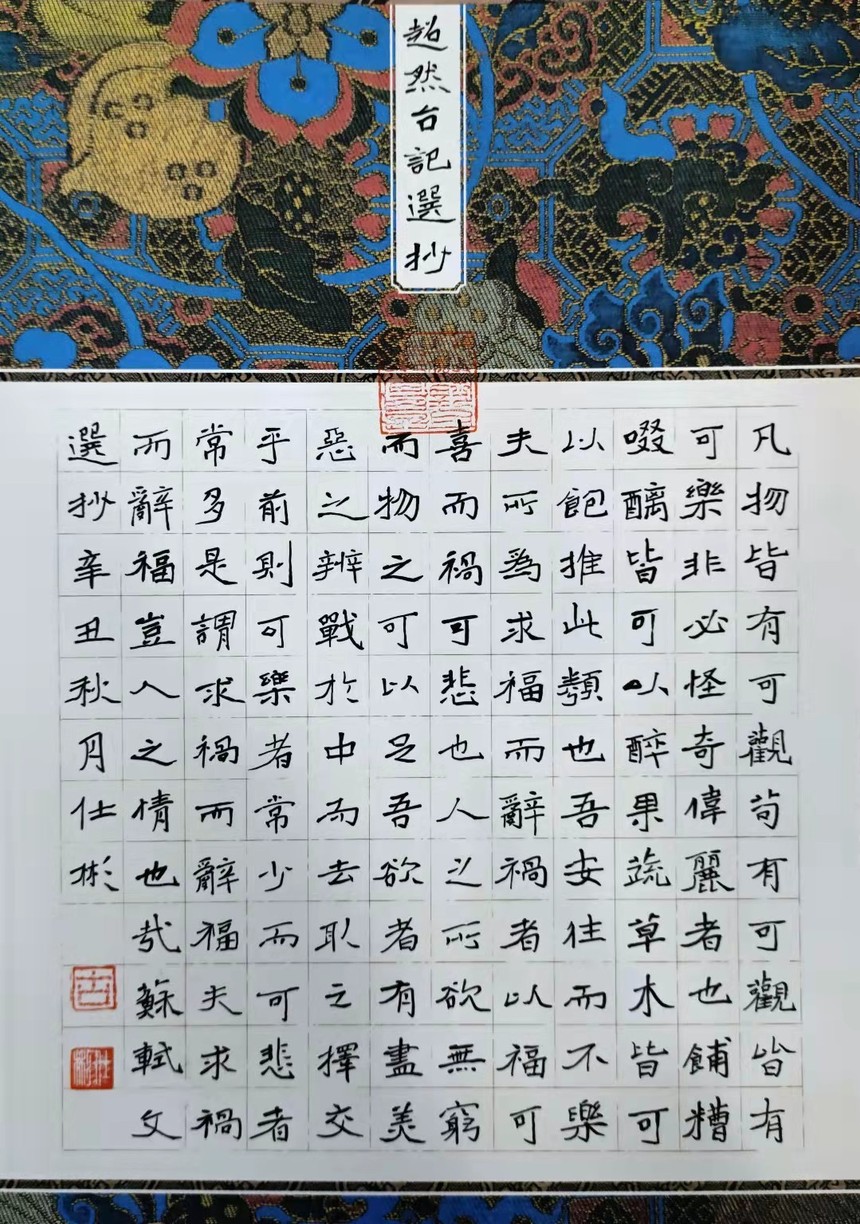 超然台記選抄
凡物皆有可觀苟有可觀皆有
可樂非必怪奇偉麗者也餔糟
啜醨皆可以醉果蔬草木皆可
以飽推此類也吾安往而不樂
夫所為求福而辭禍者以福可
喜而禍可悲也人之所欲無窮
而物之可以足吾欲者有盡美
惡之辨戰於中而去取之擇交
乎前則可樂者常少而可悲者
常多是謂求禍而辭福夫求禍
而辭福豈人之情也哉蘇軾文
選抄辛丑秋月仕彬